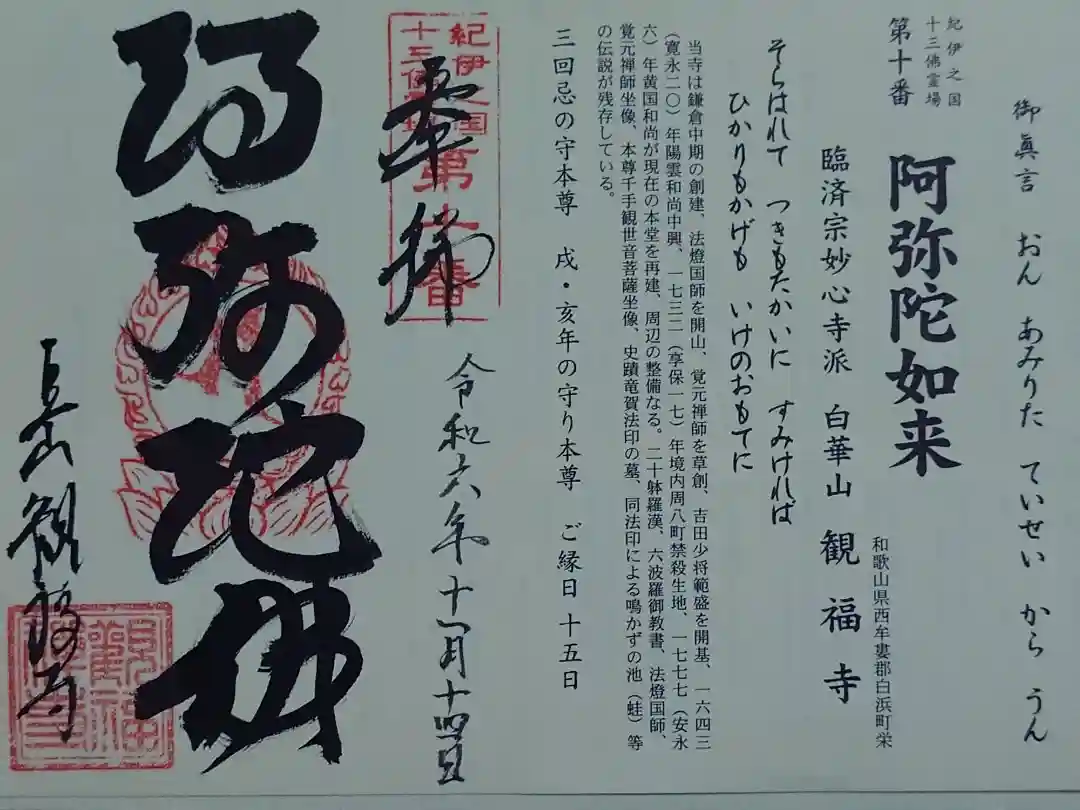 御眞言　おん　あみりた　ていせい　から　うん
紀伊之国
十三佛霊場
第十番
阿弥陀如来
和歌山県西牟婁郡白浜町栄
臨済宗妙心寺派　白華山　観福寺
そらはれて　つきもたかいに　すみければ
ひかりもかげも　いけのおもてに
当寺は鎌倉中期の創建、法燈国師を開山、覚元禅師を草創、吉田少将範盛を開基、一六四三
（寛永二〇）年陽雲和尚中興、一七三二（享保一七）年境内周八町禁殺生地、一七七七（安永
六）年黄国和尚が現在の本堂を再建、周辺の整備なる。二十躰羅漢、六波羅御教書、法燈国師、
覚元禅師坐像、本尊千手観世音菩薩坐像、史蹟竜賀法印の墓、同法印による鳴かずの池（蛙）等
の伝説が残存している。
三回忌の守本尊　戌・亥年の守り本尊　ご縁日十五日
紀伊之国
十三佛霊場
第十番
奉拝
令和六年十一月十四日
阿弥陀佛
観福寺
観福寺